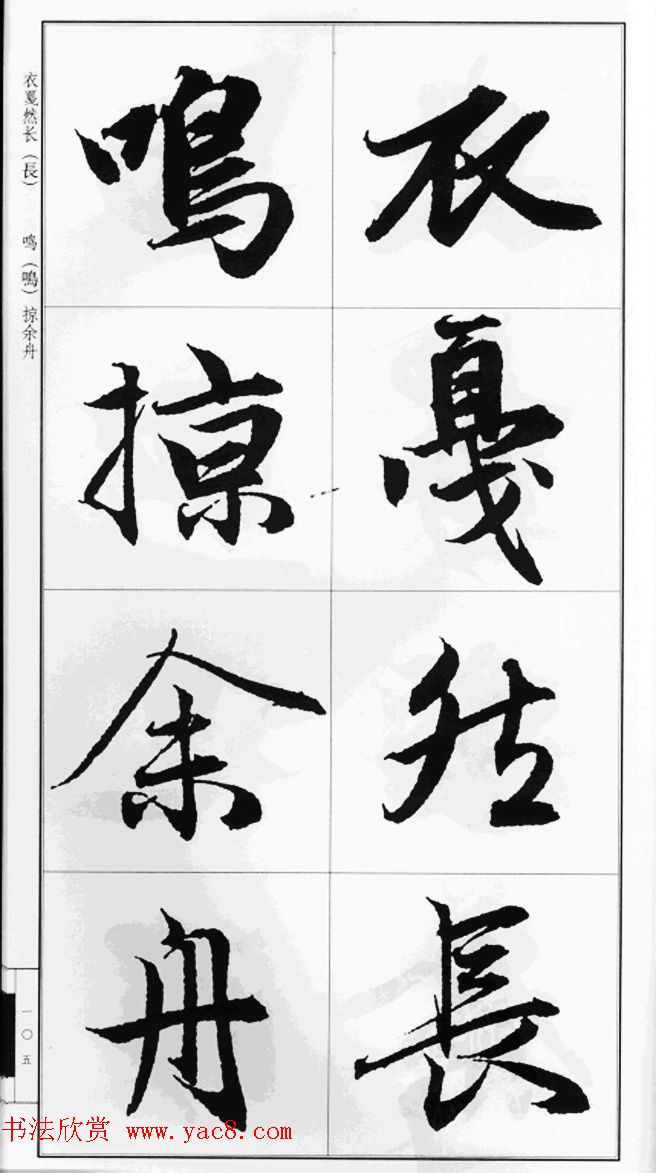 衣戛然長
鳴掠余舟
衣戛然长（長）　鸣（鳴）掠余舟
一〇五
书法欣赏 www.yac8.com